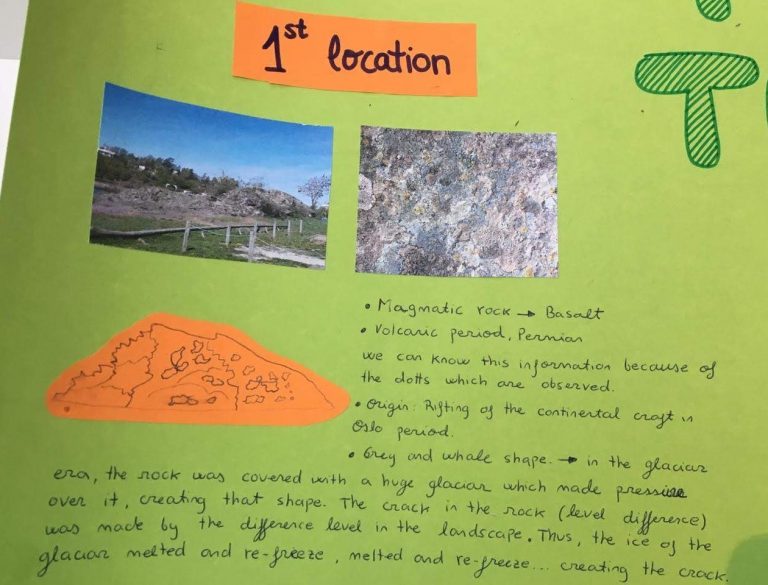 1st location
T
• Magmatic rock → Basalt
• Volcanic period, Permian
we can know this information because of
the dotts which are observed.
• Origin: Rifting of the continental crast in
Oslo period.
• Grey and whale shape. → in the glaciar
era, the rock was covered with a huge glaciar which made pressure
over it, creating that shape. The crack in the rock (level difference)
was made by the difference level in the landscape. Thus, the ice of the
glaciar melted and re-freeze, melted and re-freeze... creating the crack.